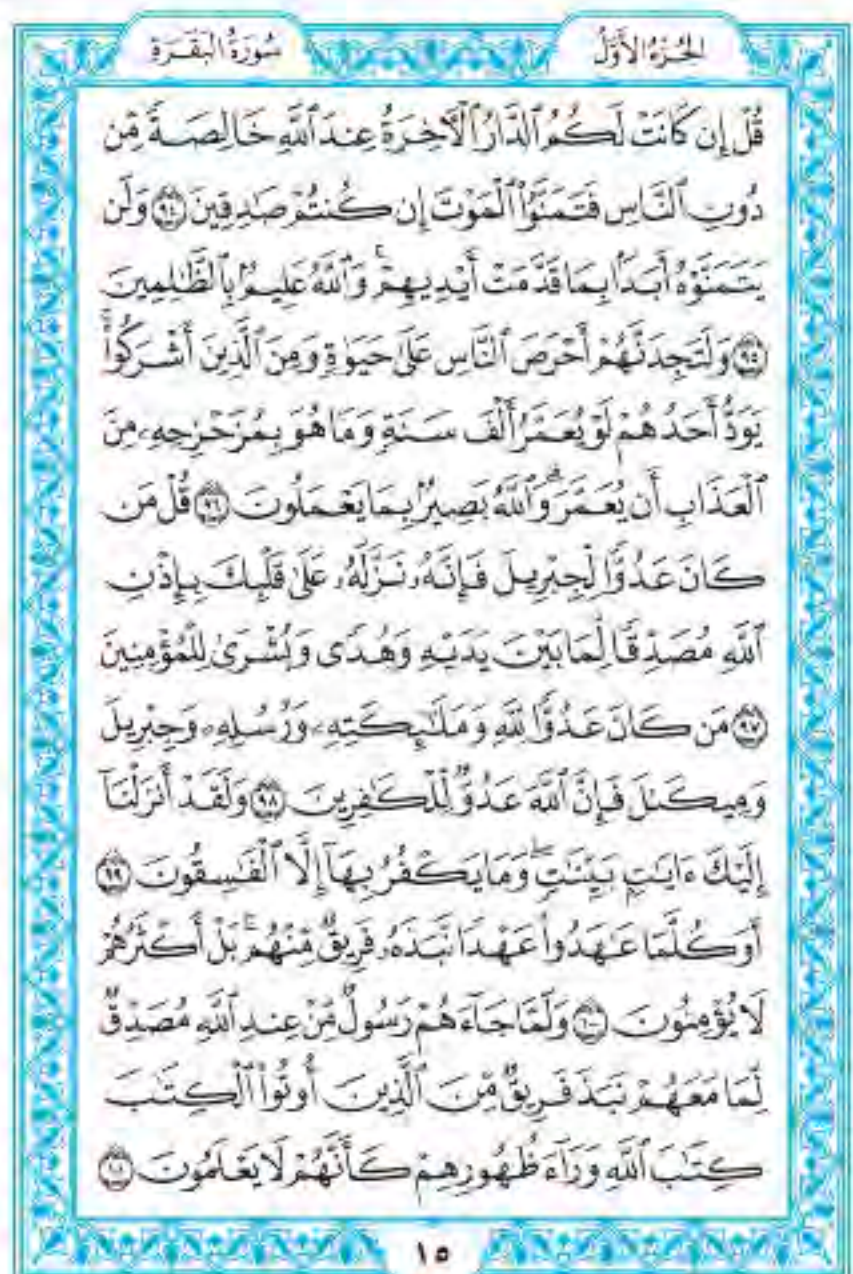 الجُزْءُ الأَوَّلُ
سُورَةُ البَقَرَةِ
قُلْ إِن كَانَتْ لَكُمُ ٱلدَّارُ ٱلْأَخِرَةُ عِندَ ٱللَّهِ خَالِصَةً مِّن
دُونِ ٱلنَّاسِ فَتَمَنَّوُا۟ ٱلْمَوْتَ إِن كُنتُمْ صَٰدِقِينَ ٩٤ وَلَن
يَتَمَنَّوْهُ أَبَدًۢا بِمَا قَدَّمَتْ أَيْدِيهِمْ ۗ وَٱللَّهُ عَلِيمٌۢ بِٱلظَّٰلِمِينَ
٩٥ وَلَتَجِدَنَّهُمْ أَحْرَصَ ٱلنَّاسِ عَلَىٰ حَيَوٰةٍ وَمِنَ ٱلَّذِينَ أَشْرَكُوا۟ ۚ
يَوَدُّ أَحَدُهُمْ لَوْ يُعَمَّرُ أَلْفَ سَنَةٍ وَمَا هُوَ بِمُزَحْزِحِهِۦ مِنَ
ٱلْعَذَابِ أَن يُعَمَّرَ ۗ وَٱللَّهُ بَصِيرٌۢ بِمَا يَعْمَلُونَ ٩٦ قُلْ مَن
كَانَ عَدُوًّا لِّجِبْرِيلَ فَإِنَّهُۥ نَزَّلَهُۥ عَلَىٰ قَلْبِكَ بِإِذْنِ
ٱللَّهِ مُصَدِّقًا لِّمَا بَيْنَ يَدَيْهِ وَهُدًى وَبُشْرَىٰ لِلْمُؤْمِنِينَ
٩٧ مَن كَانَ عَدُوًّا لِّلَّهِ وَمَلَٰٓئِكَتِهِۦ وَرُسُلِهِۦ وَجِبْرِيلَ
وَمِيكَىٰلَ فَإِنَّ ٱللَّهَ عَدُوٌّ لِّلْكَٰفِرِينَ ٩٨ وَلَقَدْ أَنزَلْنَآ
إِلَيْكَ ءَايَٰتٍۭ بَيِّنَٰتٍ ۖ وَمَا يَكْفُرُ بِهَآ إِلَّا ٱلْفَٰسِقُونَ ٩٩
أَوَكُلَّمَا عَٰهَدُوا۟ عَهْدًا نَّبَذَهُۥ فَرِيقٌ مِّنْهُم ۚ بَلْ أَكْثَرُهُمْ
لَا يُؤْمِنُونَ ١٠٠ وَلَمَّا جَآءَهُمْ رَسُولٌ مِّنْ عِندِ ٱللَّهِ مُصَدِّقٌ
لِّمَا مَعَهُمْ نَبَذَ فَرِيقٌ مِّنَ ٱلَّذِينَ أُوتُوا۟ ٱلْكِتَٰبَ
كِتَٰبَ ٱللَّهِ وَرَآءَ ظُهُورِهِمْ كَأَنَّهُمْ لَا يَعْلَمُونَ ١٠١
١٥